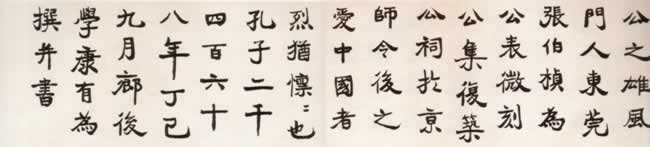 公之雄風
門人東莞
張伯楨為
公表微刻
公集復築
公祠於京
師令後之
愛中國者
烈猶懍〻也
孔子二千
四百六十
八年丁巳
九月鄙後
學康有為
撰并書